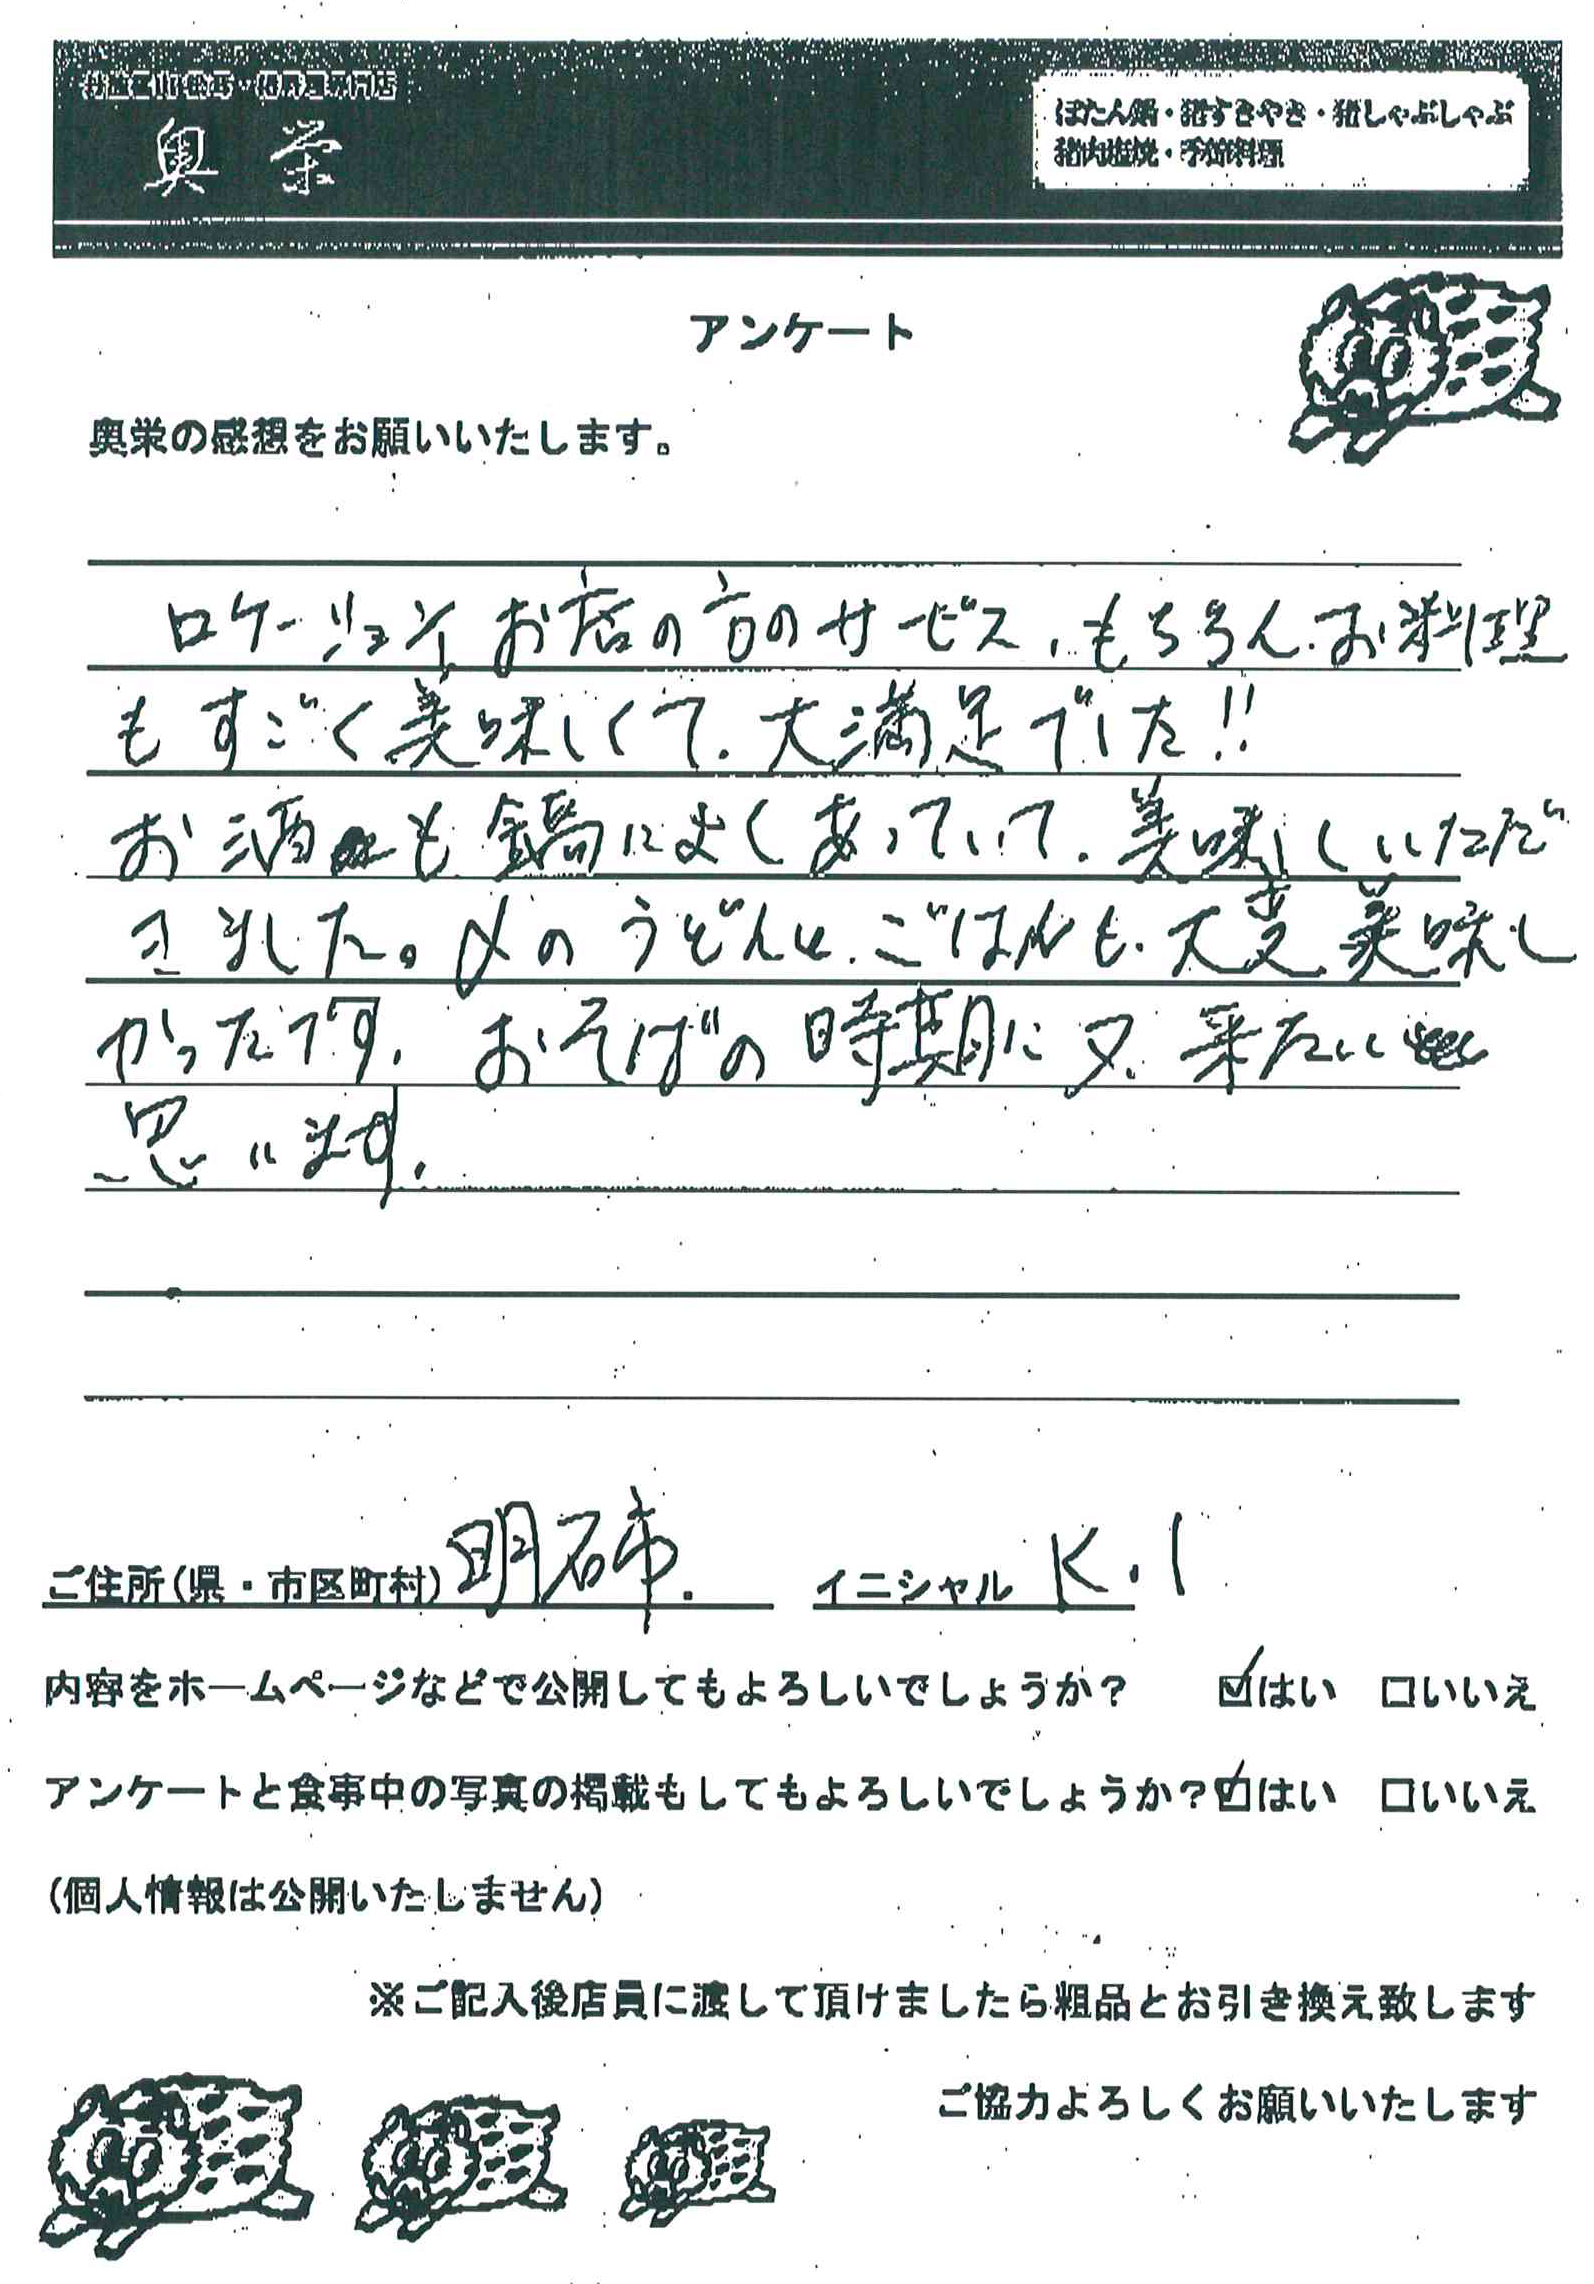 奥栄
ぼたん鍋・猪すきやき・猪しゃぶしゃぶ
猪肉塩焼・季節料理
アンケート
奥栄の感想をお願いいたします。
ロケーション、お店の方のサービス、もちろん、お料理
もすごく美味しくて、大満足でした!!
お酒も鍋によくあっていて、美味しくいただ
きました。〆のうどんも、ごはんも、大変美味し
かったです。おそばの時期に又、来たいと
思います。
ご住所(県・市区町村) 明石市. イニシャル K.I
内容をホームページなどで公開してもよろしいでしょうか? ☑はい □いいえ
アンケートと食事中の写真の掲載もしてもよろしいでしょうか?☑はい □いいえ
(個人情報は公開いたしません)
※ご記入後店員に渡して頂けましたら粗品とお引き換え致します
ご協力よろしくお願いいたします